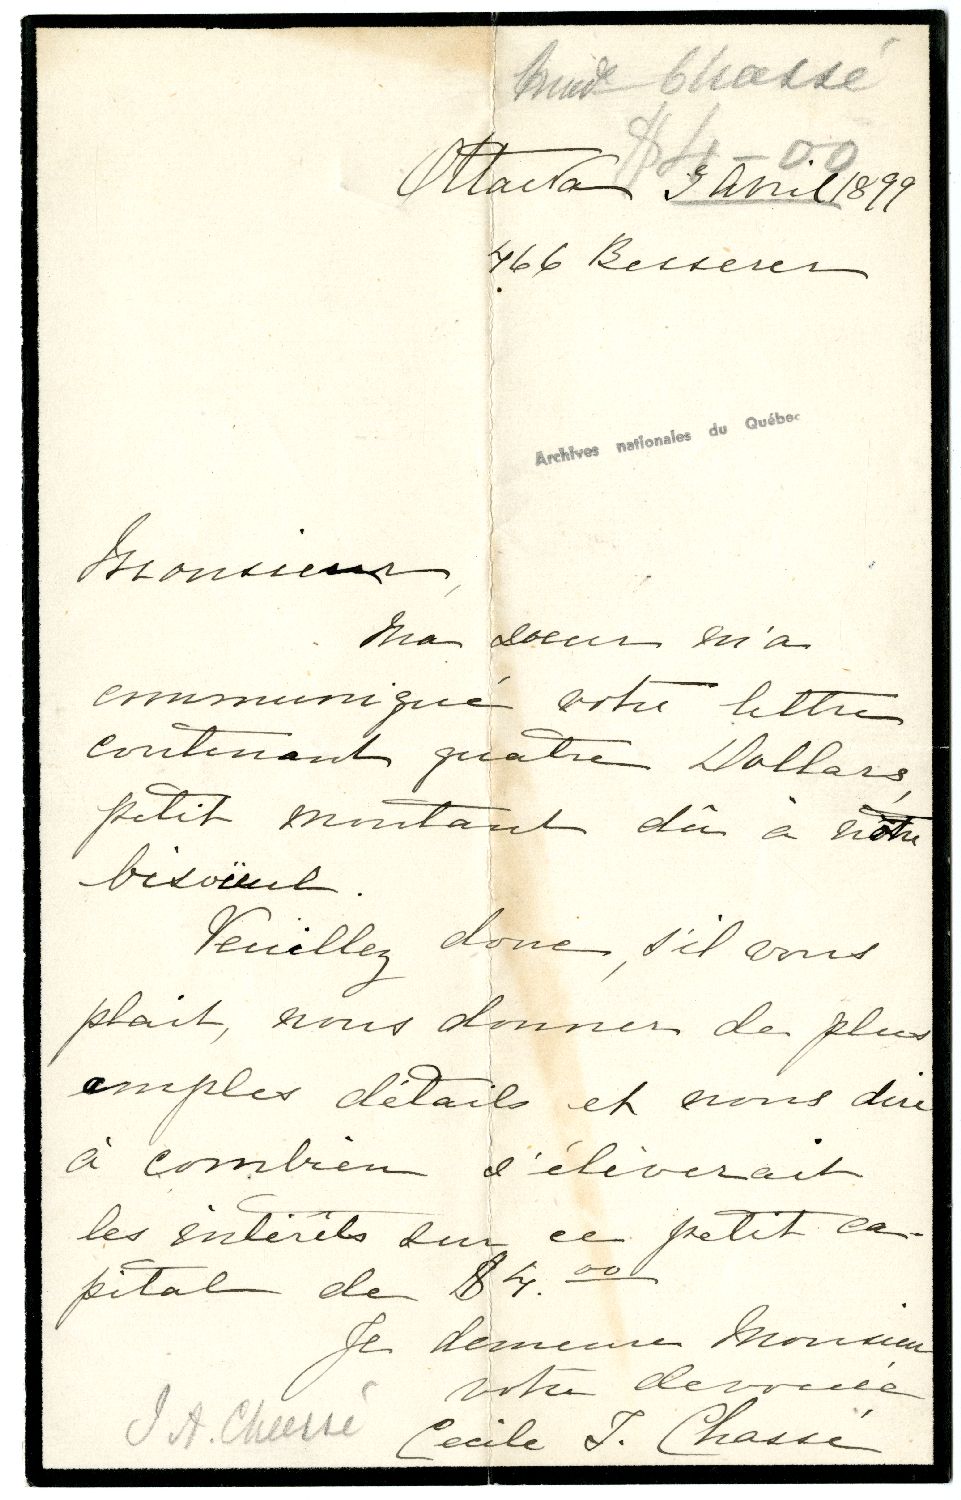 Mad^e Chassé
$4-00
Ottawa 3 Avril 1899
466 Besserer
Archives nationales du Québec
Monsieur,
Ma soeur m'a
communiqué votre lettre
contenant quatre Dollars,
petit montant dû à notre
bisaïeul.
Veuillez donc, s'il vous
plait, nous donner de plus
amples détails et nous dire
à combien s'élèverait
les intérêts sur ce petit ca-
pital de $4.00
Je demeure Monsieur
votre dévouée
Cecile T. Chassé
J A. Chassé